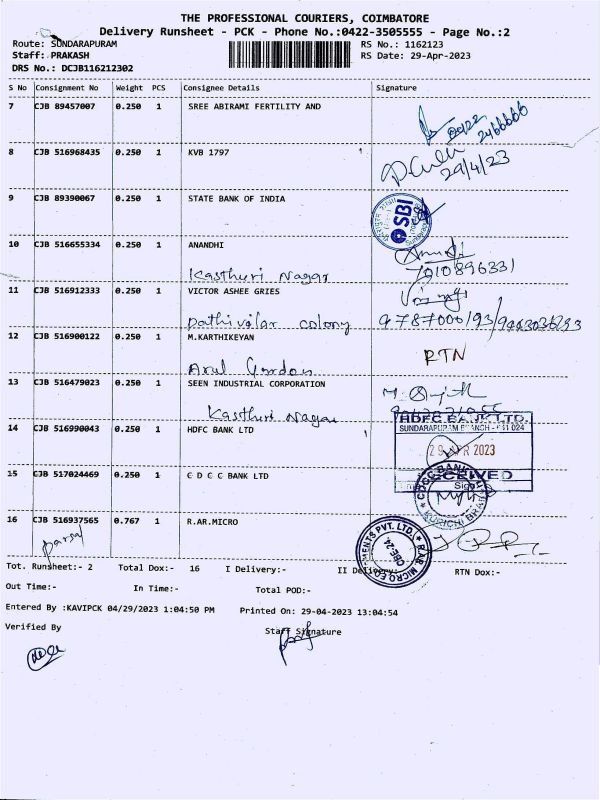 THE PROFESSIONAL COURIERS, COIMBATORE
Delivery Runsheet - PCK - Phone No.:0422-3505555 - Page No.:2
Route: SUNDARAPURAM RS No.: 1162123
Staff: PRAKASH RS Date: 29-Apr-2023
DRS No.: DCJB116212302
S No Consignment No Weight PCS Consignee Details Signature
7 CJB 89457007 0.250 1 SREE ABIRAMI FERTILITY AND
0422
2466666
8 CJB 516968435 0.250 1 KVB 1797 1
29/4/23
9 CJB 89390067 0.250 1 STATE BANK OF INDIA
SBI
10 CJB 516655334 0.250 1 ANANDHI
Kasthuri Nagar 7010896331
11 CJB 516912333 0.250 1 VICTOR ASHEE GRIES
colony
12 CJB 516900122 0.250 1 M.KARTHIKEYAN RTN
Arul Gordon
13 CJB 516479023 0.250 1 SEEN INDUSTRIAL CORPORATION
Kasthuri Nagar
14 CJB 516990043 0.250 1 HDFC BANK LTD
HDFC BANK LTD.
SUNDARAPURAM BRANCH - 641 024
29 APR 2023
RECEIVED
15 CJB 517024469 0.250 1 C D C C BANK LTD
CDCC BANK
KURICHI BRANCH
16 CJB 516937565 0.767 1 R.AR.MICRO
parsal
R.AR. MICRO ELEMENTS PVT. LTD.
CBE-24.
Tot. Runsheet:- 2 Total Dox:- 16 I Delivery:- II Delivery:- RTN Dox:-
Out Time:- In Time:- Total POD:-
Entered By :KAVIPCK 04/29/2023 1:04:50 PM Printed On: 29-04-2023 13:04:54
Verified By Staff Signature